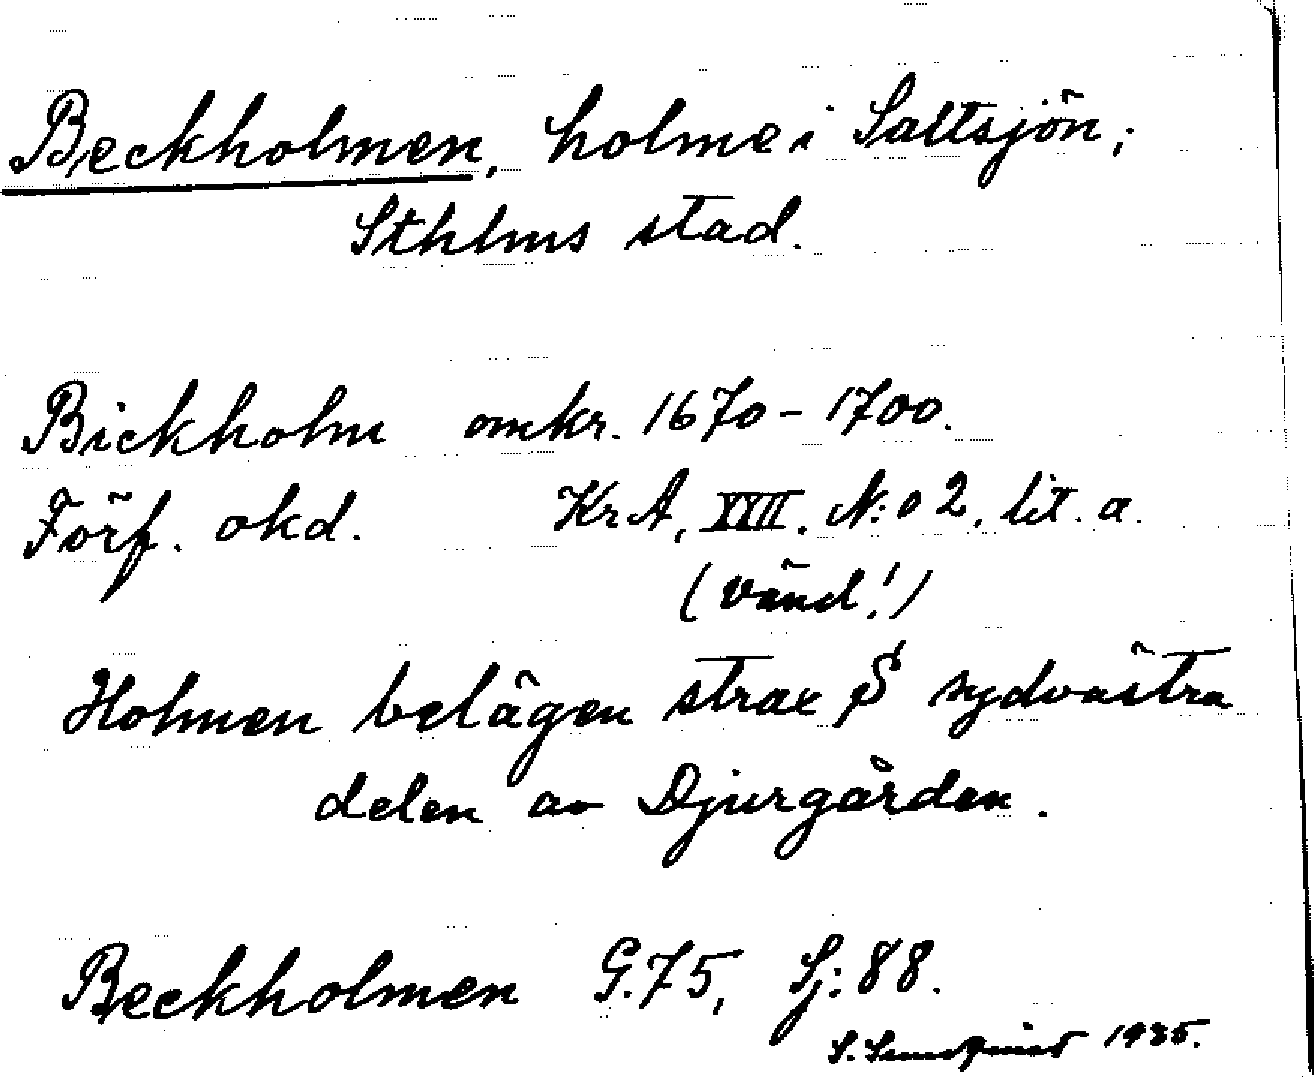 Beckholmen, holme i Saltsjön;
Sthlms stad.
Bickholm omkr. 1670-1700.
Förf. okd. KrA, XVII. N:o 2, lit. a.
(vänd!)
Holmen belägen strax S sydvästra
delen av Djurgården.
Beckholmen G.75, Sj:88.
S. 1935.